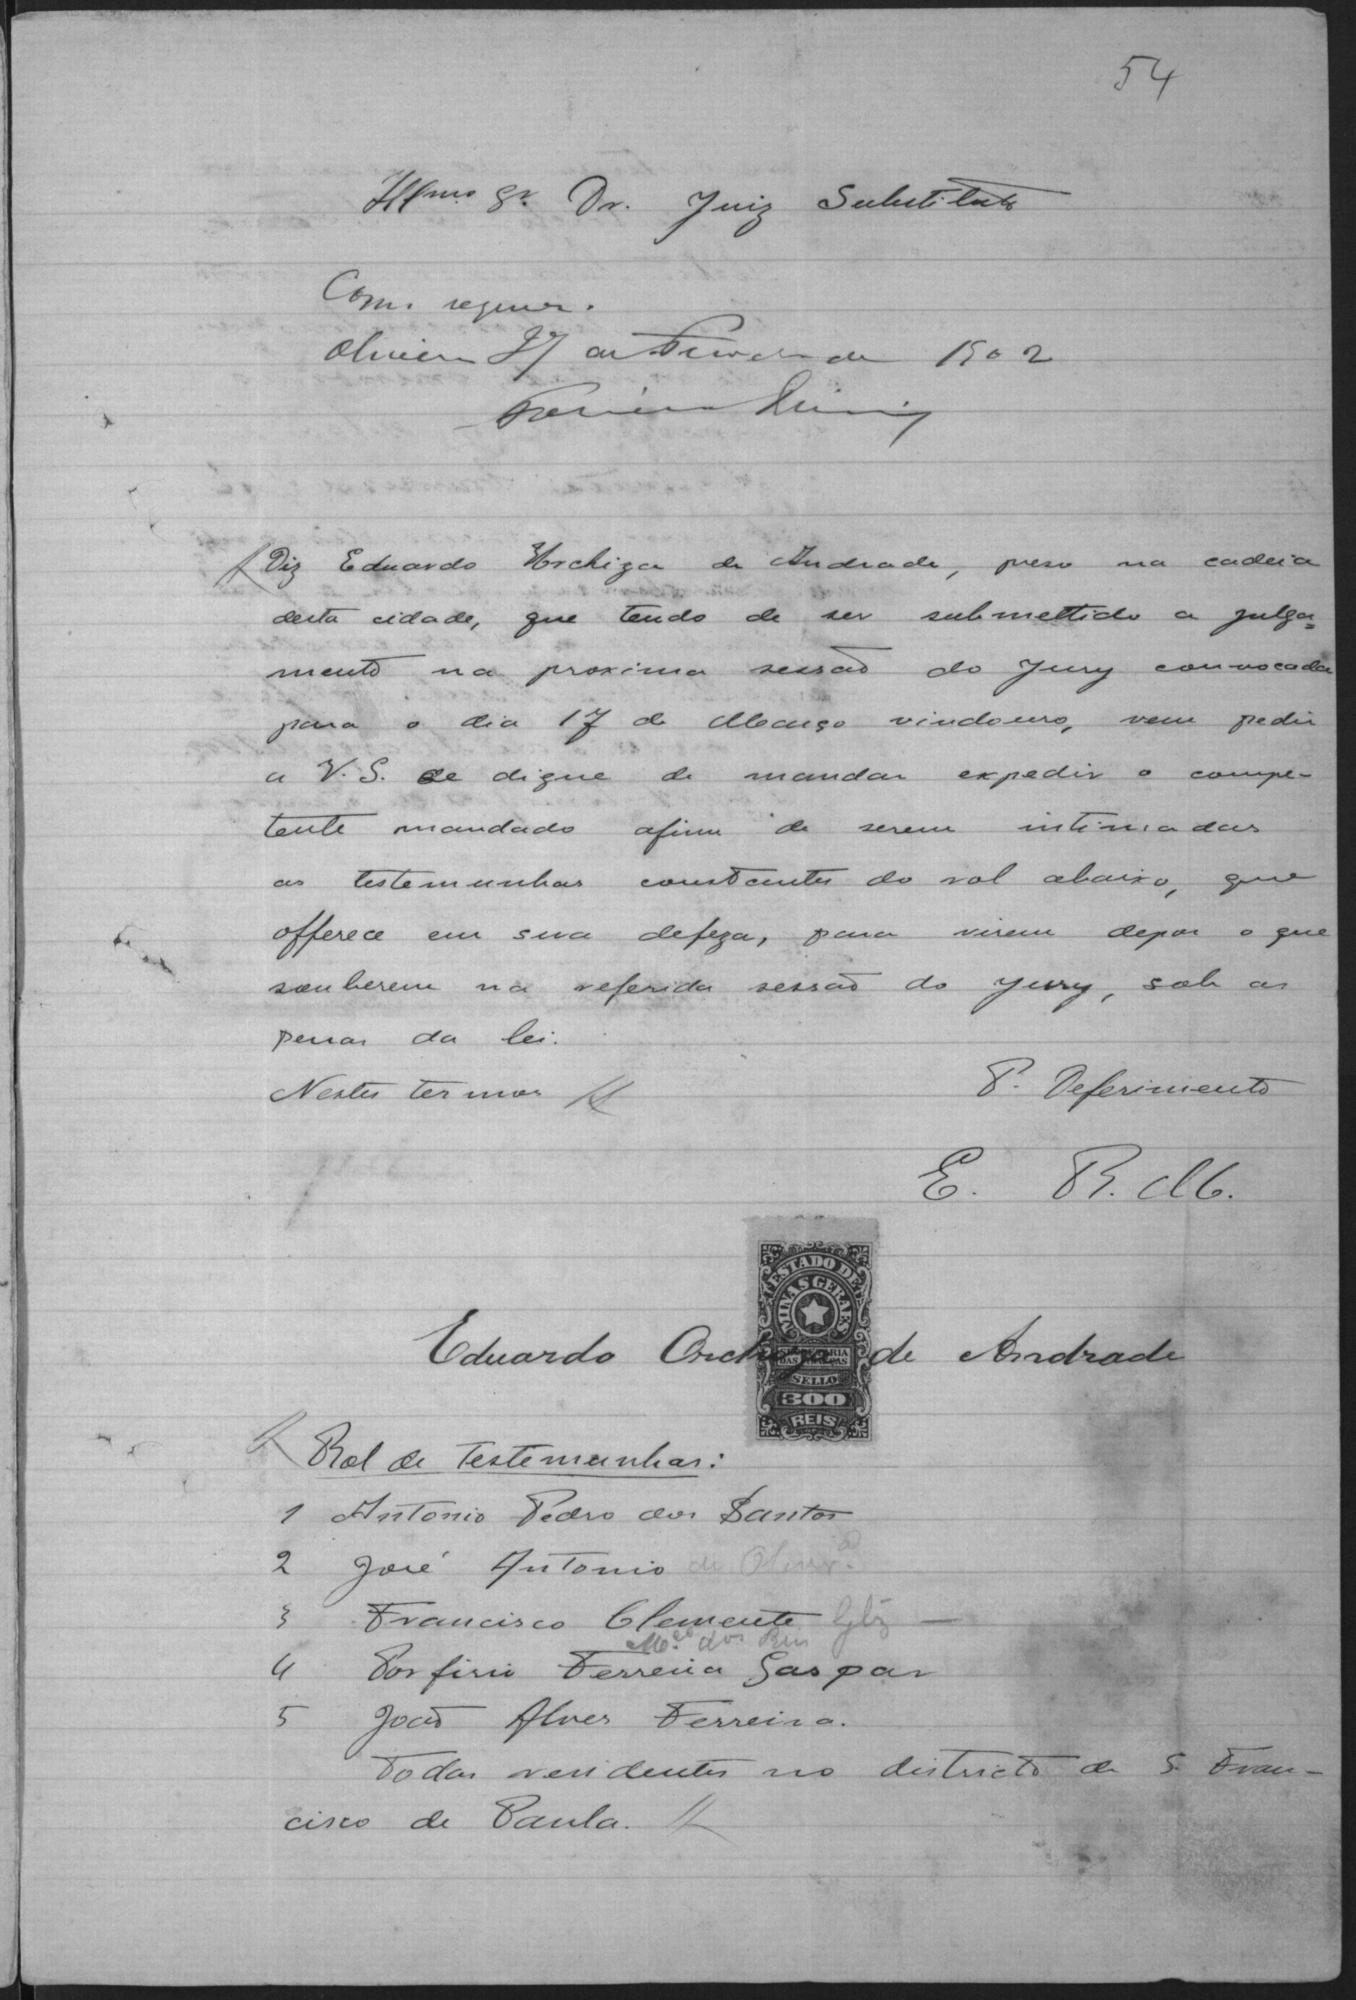 54
Illmo. Sr. Dr. Juiz Substituto
Como requer.
Oliveira 27 de Fevereiro de 1902
Diz Eduardo Orchiza de Andrade, preso na cadeia
desta cidade, que tendo de ser submettido a julga=
mento na proxima sessão do Jury convocada
para o dia 17 de Março vindouro, vem pedir
a V. S. se digne de mandar expedir o compe-
tente mandado afim de serem intimadas
as testemunhas constantes do rol abaixo, que
offerece em sua defeza, para virem depor o que
souberem na referida sessão do Jury, sob as
penas da lei.
Nestes termos P. Deferimento
E. R. M.
ESTADO DE
MINAS GERAES
SECRETARIA
DAS FINANÇAS
SELLO
300
REIS
Eduardo Orchiza de Andrade
Rol de testemunhas:
1 Antonio Pedro dos Santos
2 José Antonio de Olivra.
3 Francisco Clemente
dos Reis
4 Porfirio Ferreira Gaspar
5 João Alves Ferreira.
Todas residentes no districto de S. Fran-
cisco de Paula.